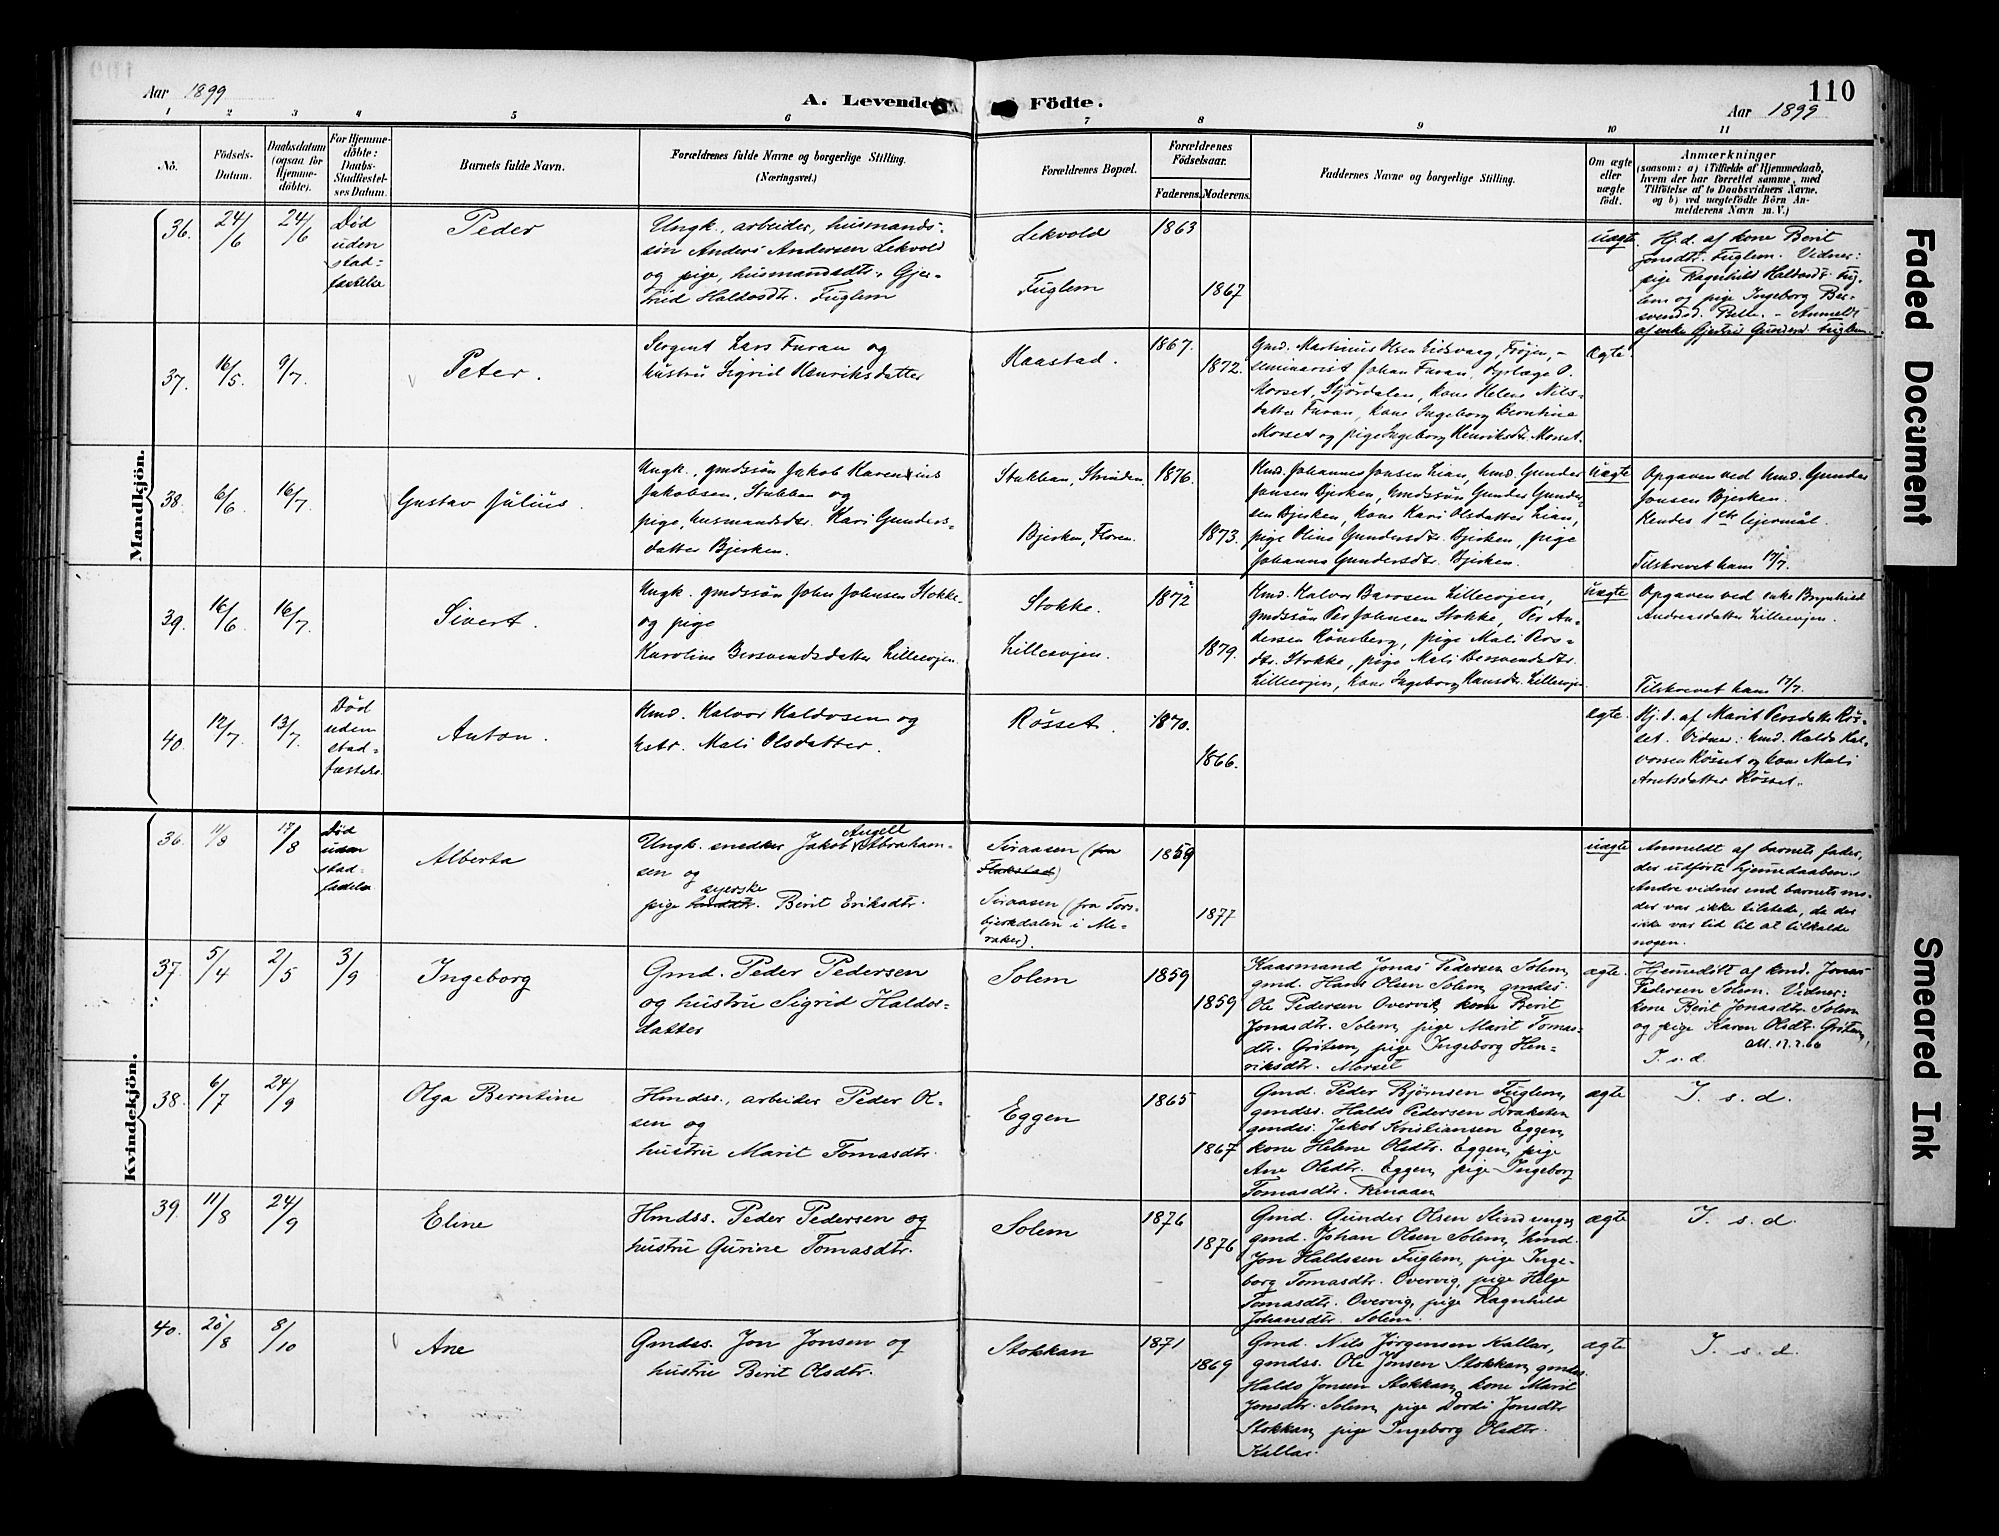 110
Aar 1899
A. Levende Födte.
Aar 1899
1 2 3 4 5 6 7 8 9 10 11
No.
Födsels-
Datum.
Daabsdatum
(ogsaa for
Hjemme-
döbte).
For Hjemme-
döbte:
Daabs-
Stadfæstel-
ses Datum.
Barnets fulde Navn.
Forældrenes fulde Navne og borgerlige Stilling.
(Næringsvei.)
Forældrenes Bopæl.
Forældrenes
Födselsaar.
Faderens. Moderens.
Faddernes Navne og borgerlige Stilling.
Om ægte
eller
uægte
födt.
Anmærkninger
(saasom: a) i Tilfælde af Hjemmedaab,
hvem der har forrettet samme, med
Tilföielse af to Daabsvidners Navne,
og b) ved uægtefödte Börn An-
melderens Navn m. V.)
Mandkjön.
36.
24/6
24/6
Død
uden
stad-
fæstelse
Peder
Ungk., arbeider, husmands-
søn Anders Andersen Lekvold
og pige, husmandsdtr. Gjer-
trud Haldosdtr. Fuglem
Lekvold
Fuglem
1863
1867
uægte
Hj.d. af kone Berit
Jonsdtr. Fuglem. Vidner:
pige Ragnhild Haldosdt. Fug-
lem og pige Ingeborg Ber-
svendsd. – Anmeldt
af enke Gjertru Gundersd. Fuglem.
37.
16/5
9/7.
Peter.
Sergent Lars Furan og
hustru Sigrid Henriksdatter
Haastad.
1867.
1872.
Gmd. Martinius Olsen Eidsvaag, Frøjen, –
seminarist Johan Furan, dyrlæge O.
Morset, Stjørdalen, kone Helene Nils-
datter Furan, kone Ingeborg Berntine
Morset og pige Ingeborg Henriksdtr. Morset.
Ægte
38.
6/6
16/7.
Gustav Julius.
Ungk., gmdssøn Jakob Karenius
Jakobsen, Stubban og
pige, husmandsdtr. Kari Gunders-
datter Bjerken.
Stubban, Strinden.
Bjerken, Floren.
1876.
1873.
Hmd. Johannes Jonsen Lian, hmd. Gunder
Jonsen Bjerken, hmdssøn Gunder Gunder-
sen Bjerken, kone Kari Olsdatter Lian,
pige Oline Gundersdtr. Bjerken, pige
Johanna Gundersdtr. Bjerken.
uægte
Opgaven ved hmd. Gunder
Jonsen Bjerken.
Kendes 1ste lejermål.
Tilskrevet ham 17/7.
39.
16/6
16/7.
Sivert.
Ungk. gmdssøn John Johnsen Stokke
og pige
Karoline Bersvendsdatter Lillevjen.
Stokke.
Lillevjen.
1872
1879.
Hmd. Halvor Lillevjen,
gmdssøn Per Johnsen Stokke, Per An-
dersen Rønsberg, pige Mali Pers-
dtr. Stokke, pige Mali Bersvendsdtr.
Lillevjen, kone Ingeborg Hansdtr. Lillevjen
uægte
Opgaven ved enke Brynhild
Andreasdatter Lillevjen.
Tilskrevet ham 17/7.
40.
12/7
13/7.
Død
uden
stad-
fæstelse.
Anton.
Hmd. Halvor Haldosen og
hstr. Mali Olsdatter.
Røsset.
1870.
1866.
egte.
Hj.d. af Marit Persdatter Røs-
set. Vidner: hmd. Haldo Hal-
vorsen Røsset og kone Mali
Arntsdatter Røsset.
Kvindekjön.
36.
11/8
17/8
Død
uden
stad-
Alberta
Ungk. snedker Jakob Angell Abraham-
sen og
syerske
pige husdtr. Berit Eriksdtr.
Siraasen (fra
Flakstad)
Siraasen (fra Tors-
bjerkdalen i Me-
raker).
1859
1877
uægte
Anmeldt af barnets fader,
der udførte hjemmedaaben.
Andre vidner end barnets mo-
der var ikke tilstede, da der
ikke var tid til at tilkalde
nogen.
37.
5/4
2/5
3/9
Ingeborg
Gmd. Peder Pedersen
og hustru Sigrid Haldos-
datter
Solem
1859
1859
Kaasmand Jonas Pedersen Solem,
gmd. Hans Olsen Solem, gmdss.
Ole Pedersen Overvik, kone Berit
Jonasdtr. Solem, pige Marit Tomas-
dtr. Gritsem, pige Ingeborg Hen-
riksdtr. Morset
ægte.
Hjemmedöbt af kmd. Jonas
Pedersen Solem. Vidner:
kone Berit Jonasdtr. Solem
og pige Karen Olsdtr. Gritsem,
I. s. d.
38.
6/7
24/9
Olga Berntine
Hmdss., arbeider Peder Ol-
sen og
hustru Marit Tomasdtr.
Eggen
1865
1867
Gmd. Peder Bjørnsen Fuglem,
gmdss. Haldo Pedersen Draksten
gmdss. Jakob Kristiansen Eggen,
kone Helene Olsdtr. Eggen, pige
Ane Olsdtr. Eggen, pige Ingeborg
Tomasdtr. Renaaen
ægte
I. s. d.
39.
11/8
24/9
Eline
Hmdss. Peder Pedersen og
hustru Gurine Tomasdtr.
Solem
1876
1876
Gmd. Gunder Olsen
gmd. Johan Olsen Solem, hmd.
Jon Haldssen Fuglem, pige Inge-
borg Tomasdtr. Overvig, pige Helge
Tomasdtr. Overvig, pige Ragnhild
Johansdtr. Solem.
ægte
I. s. d.
40.
20/8
8/10
Ane
Gmdss. Jon Jonsen og
hustru Berit Olsdtr.
Stokkan
1871
1869
Gmd. Nils Jørgensen Kallar,
gmdss. Ole Jonsen Stokkan, gmdss.
Haldo Jonsen Stokkan, kone Marit
Jonsdtr. Solem, pige Dordi Jonsdtr
Stokkan, pige Ingeborg Olsdtr.
Kallar.
ægte
I. s. d.
Faded Document
Smeared Ink